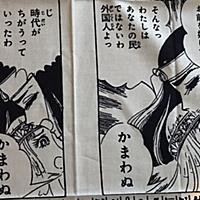 そんなっ
わたしは
あなたの民
ではないわ
外国人よっ
かまわぬ
じ
時代が
ちがうって
いったわ
かまわぬ